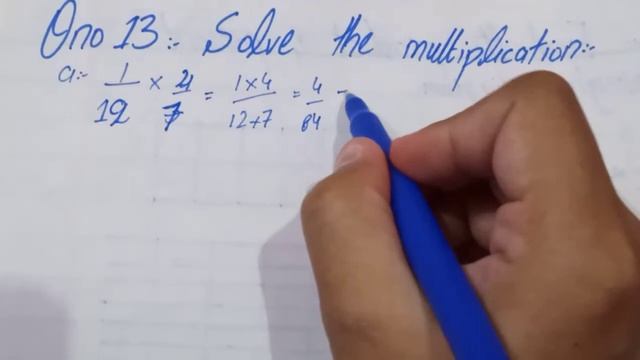 Qno 13:- Solve the multiplication:-
a:- 1/12 × 4/7 = 1×4/12+7 = 4/84 =